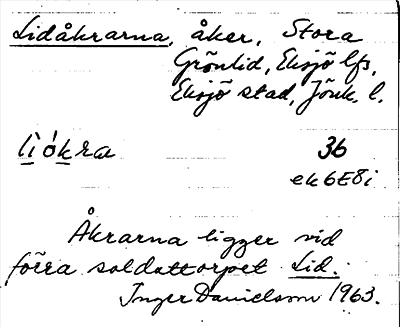 Lidåkrarna, åker, Stora
Grönlid, Eksjö lfs,
Eksjö stad, Jönk. l.
lìókra 36
ek6E8i
Åkrarna ligger vid
förra soldattorpet Lid.
Inger Danielsson 1963.